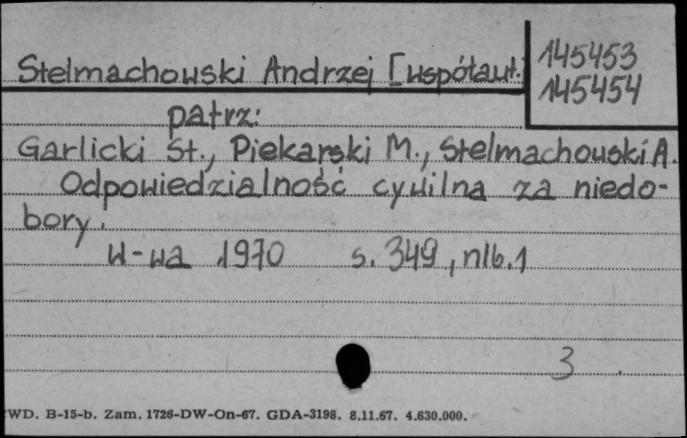 Stelmachowski Andrzej [współaut.
145453
145454
patrz:
Garlicki St., Piekarski M., Stelmachowski A.
Odpowiedzialność cywilna za niedo-
bory.
W-wa 1970 s. 349, nlb. 1
3
WD. B-15-b. Zam. 1726-DW-On-67. GDA-3198. 8.11.67. 4.630.000.